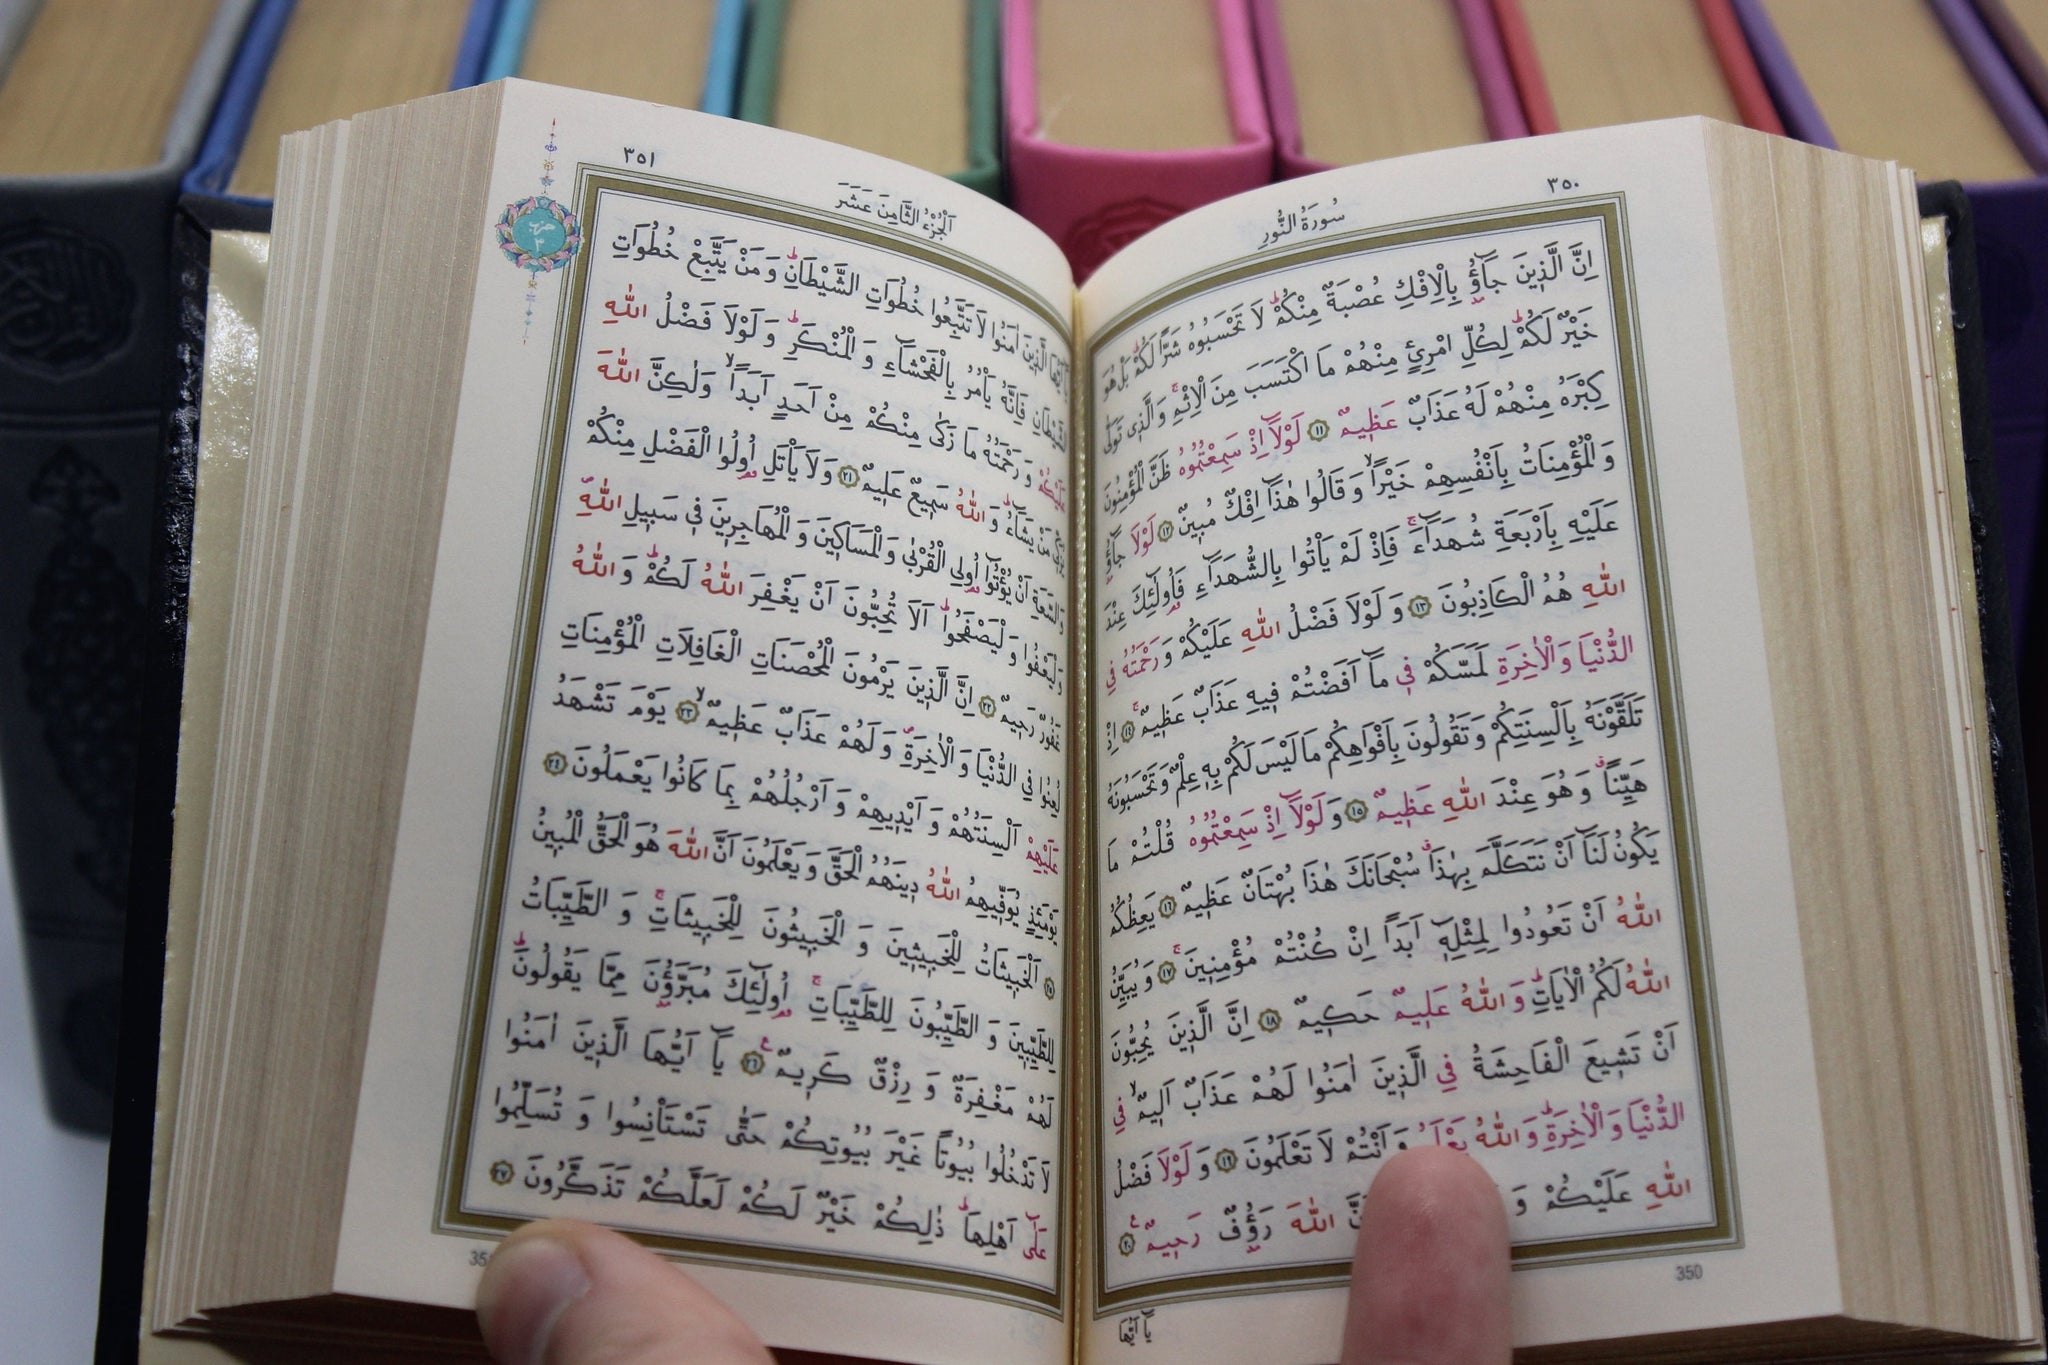 ٣٥٠
سُورَةُ النُّورِ
اِنَّ الَّذ۪ينَ جَٓاؤُ بِالْاِفْكِ عُصْبَةٌ مِنْكُمْۜ لَا تَحْسَبُوهُ شَرًّا لَكُمْۜ بَلْ هُوَ
خَيْرٌ لَكُمْۜ لِكُلِّ امْرِئٍ مِنْهُمْ مَا اكْتَسَبَ مِنَ الْاِثْمِۚ وَالَّذ۪ي تَوَلّٰى
كِبْرَهُ مِنْهُمْ لَهُ عَذَابٌ عَظ۪يمٌ ﴿١١﴾ لَوْلَٓا اِذْ سَمِعْتُمُوهُ ظَنَّ الْمُؤْمِنُونَ
وَالْمُؤْمِنَاتُ بِاَنْفُسِهِمْ خَيْرًاۙ وَقَالُوا هٰذَٓا اِفْكٌ مُب۪ينٌ ﴿١٢﴾ لَوْلَا جَٓاؤُ
عَلَيْهِ بِاَرْبَعَةِ شُهَدَٓاءَۚ فَاِذْ لَمْ يَأْتُوا بِالشُّهَدَٓاءِ فَاُو۬لٰٓئِكَ عِنْدَ
اللّٰهِ هُمُ الْكَاذِبُونَ ﴿١٣﴾ وَلَوْلَا فَضْلُ اللّٰهِ عَلَيْكُمْ وَرَحْمَتُهُ فِي
الدُّنْيَا وَالْاٰخِرَةِ لَمَسَّكُمْ ف۪ي مَٓا اَفَضْتُمْ ف۪يهِ عَذَابٌ عَظ۪يمٌۚ ﴿١٤﴾ اِذْ
تَلَقَّوْنَهُ بِاَلْسِنَتِكُمْ وَتَقُولُونَ بِاَفْوَاهِكُمْ مَا لَيْسَ لَكُمْ بِه۪ عِلْمٌ وَتَحْسَبُونَهُ
هَيِّنًاۗ وَهُوَ عِنْدَ اللّٰهِ عَظ۪يمٌ ﴿١٥﴾ وَلَوْلَٓا اِذْ سَمِعْتُمُوهُ قُلْتُمْ مَا
يَكُونُ لَنَٓا اَنْ نَتَكَلَّمَ بِهٰذَاۗ سُبْحَانَكَ هٰذَا بُهْتَانٌ عَظ۪يمٌ ﴿١٦﴾ يَعِظُكُمُ
اللّٰهُ اَنْ تَعُودُوا لِمِثْلِه۪ٓ اَبَدًا اِنْ كُنْتُمْ مُؤْمِن۪ينَۚ ﴿١٧﴾ وَيُبَيِّنُ
اللّٰهُ لَكُمُ الْاٰيَاتِۜ وَاللّٰهُ عَل۪يمٌ حَك۪يمٌ ﴿١٨﴾ اِنَّ الَّذ۪ينَ يُحِبُّونَ
اَنْ تَش۪يعَ الْفَاحِشَةُ فِي الَّذ۪ينَ اٰمَنُوا لَهُمْ عَذَابٌ اَل۪يمٌۙ فِي
الدُّنْيَا وَالْاٰخِرَةِۜ وَاللّٰهُ يَعْلَمُ وَاَنْتُمْ لَا تَعْلَمُونَ ﴿١٩﴾ وَلَوْلَا فَضْلُ
اللّٰهِ عَلَيْكُمْ اللّٰهَ رَؤُ۫فٌ رَح۪يمٌ۟ ﴿٢٠﴾
350
يَٓا اَيُّهَا
٣٥١
اَلْجُزْءُ الثَّامِنَ عَشَرَ
حزب
٣
يَٓا اَيُّهَا الَّذ۪ينَ اٰمَنُوا لَا تَتَّبِعُوا خُطُوَاتِ الشَّيْطَانِۜ وَمَنْ يَتَّبِعْ خُطُوَاتِ
الشَّيْطَانِ فَاِنَّهُ يَأْمُرُ بِالْفَحْشَٓاءِ وَالْمُنْكَرِۜ وَلَوْلَا فَضْلُ اللّٰهِ
عَلَيْكُمْ وَرَحْمَتُهُ مَا زَكٰى مِنْكُمْ مِنْ اَحَدٍ اَبَدًاۙ وَلٰكِنَّ اللّٰهَ
يُزَكّ۪ي مَنْ يَشَٓاءُۜ وَاللّٰهُ سَم۪يعٌ عَل۪يمٌ ﴿٢١﴾ وَلَا يَأْتَلِ اُو۬لُوا الْفَضْلِ مِنْكُمْ
وَالسَّعَةِ اَنْ يُؤْتُٓوا اُو۬لِي الْقُرْبٰى وَالْمَسَاك۪ينَ وَالْمُهَاجِر۪ينَ ف۪ي سَب۪يلِ اللّٰهِۖ
وَلْيَعْفُوا وَلْيَصْفَحُواۜ اَلَا تُحِبُّونَ اَنْ يَغْفِرَ اللّٰهُ لَكُمْۜ وَاللّٰهُ
غَفُورٌ رَح۪يمٌ ﴿٢٢﴾ اِنَّ الَّذ۪ينَ يَرْمُونَ الْمُحْصَنَاتِ الْغَافِلَاتِ الْمُؤْمِنَاتِ
لُعِنُوا فِي الدُّنْيَا وَالْاٰخِرَةِۖ وَلَهُمْ عَذَابٌ عَظ۪يمٌۙ ﴿٢٣﴾ يَوْمَ تَشْهَدُ
عَلَيْهِمْ اَلْسِنَتُهُمْ وَاَيْد۪يهِمْ وَاَرْجُلُهُمْ بِمَا كَانُوا يَعْمَلُونَ ﴿٢٤﴾
يَوْمَئِذٍ يُوَفّ۪يهِمُ اللّٰهُ د۪ينَهُمُ الْحَقَّ وَيَعْلَمُونَ اَنَّ اللّٰهَ هُوَ الْحَقُّ الْمُب۪ينُ
﴿٢٥﴾ اَلْخَب۪يثَاتُ لِلْخَب۪يث۪ينَ وَالْخَب۪يثُونَ لِلْخَب۪يثَاتِۚ وَالطَّيِّبَاتُ
لِلطَّيِّب۪ينَ وَالطَّيِّبُونَ لِلطَّيِّبَاتِۚ اُو۬لٰٓئِكَ مُبَرَّؤُ۫نَ مِمَّا يَقُولُونَۜ
لَهُمْ مَغْفِرَةٌ وَرِزْقٌ كَر۪يمٌ۟ ﴿٢٦﴾ يَٓا اَيُّهَا الَّذ۪ينَ اٰمَنُوا
لَا تَدْخُلُوا بُيُوتًا غَيْرَ بُيُوتِكُمْ حَتّٰى تَسْتَأْنِسُوا وَتُسَلِّمُوا
عَلٰٓى اَهْلِهَاۜ ذٰلِكُمْ خَيْرٌ لَكُمْ لَعَلَّكُمْ تَذَكَّرُونَ ﴿٢٧﴾